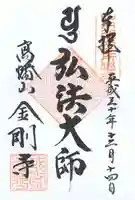 奉拝
平成三十年十二月十四日
弘法大師
高幡山
金剛寺